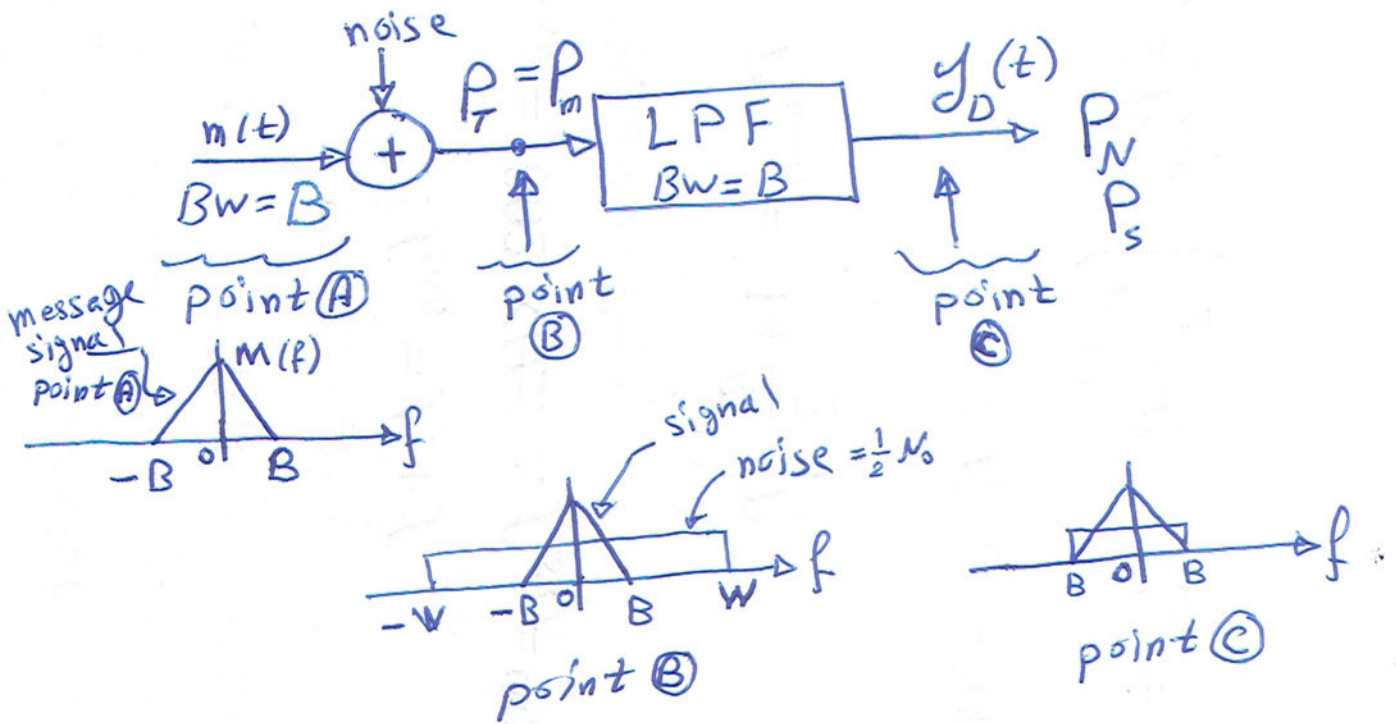 noise
m(t)
BW = B
+
P_T = P_m
LPF
BW = B
y_D(t)
P_N
P_S
point Ⓐ
point
Ⓑ
point
Ⓒ
message
signal
point Ⓐ
M(f)
-B 0 B f
signal
noise = ½ N₀
-W -B 0 B W f
point Ⓑ
B 0 B f
point Ⓒ